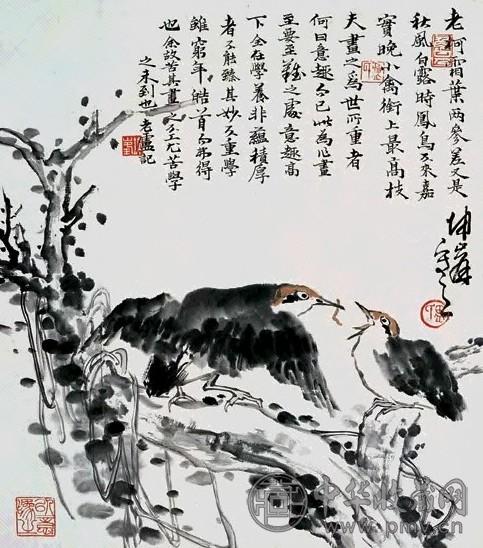 老柯霜葉兩參差又是
秋風白露時鳳鳥不來嘉
實晚小禽銜上最高枝
夫畫之為世所重者
何曰意趣而已此為作畫
至要至難之處意趣高
下全在學養非蘊積厚
者不能臻其妙不重學
雖窮年皓首而弗得
也余故苦其畫之工尤苦學
之未到也老遲記
坤
中华收藏网
www.pmv.cn